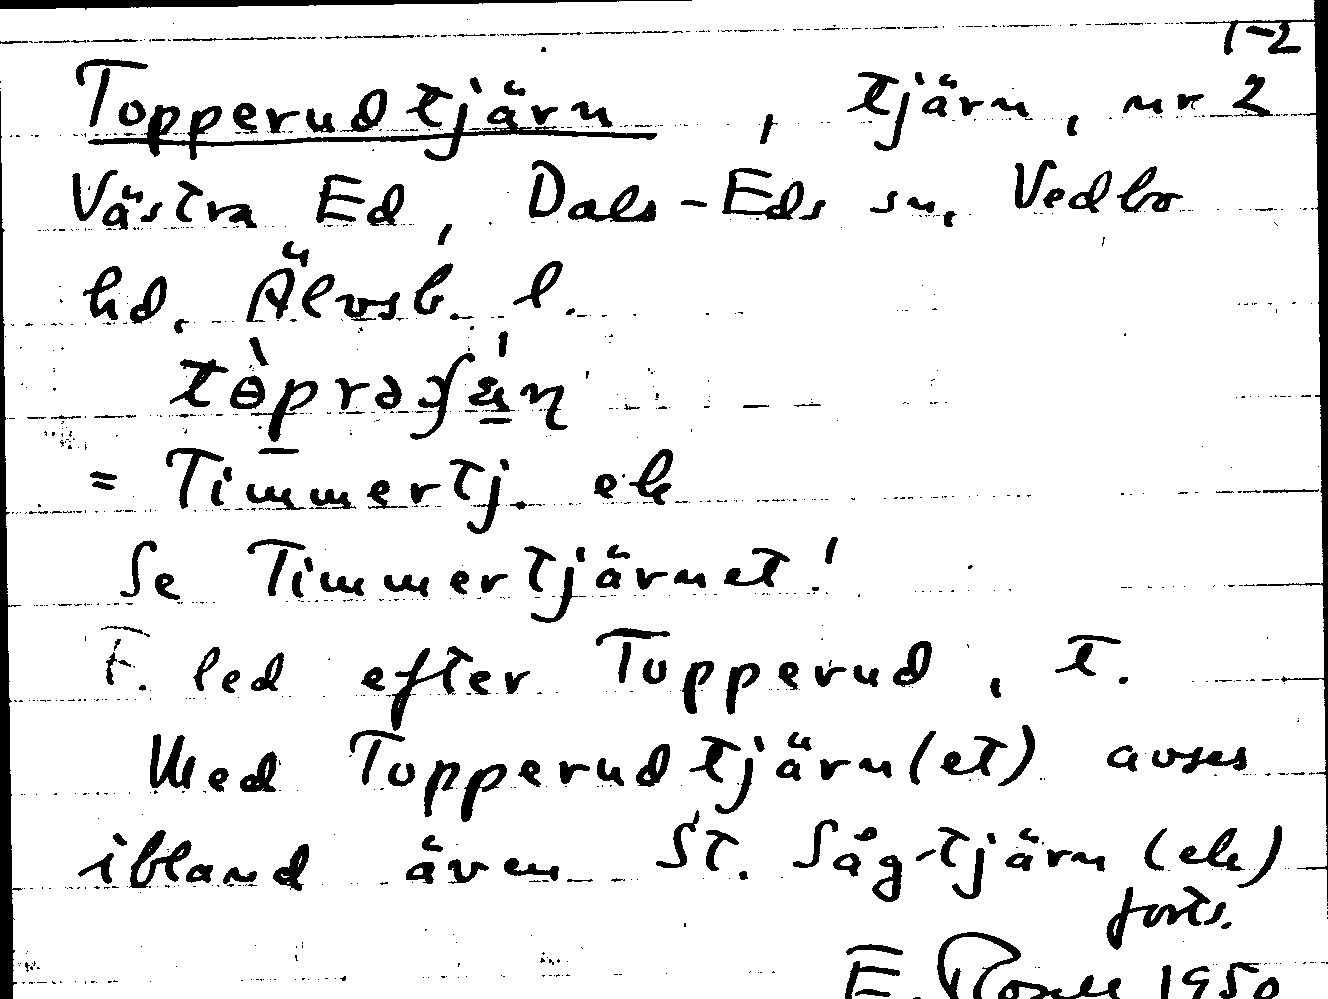 1-2
Topperudtjärn, tjärn, nr 2
Västra Ed, Dals-Eds sn, Vedbo
hd, Älvsb. l.
= Timmertj. ek
Se Timmertjärnet!
F. led efter Topperud, t.
Med Topperudtjärn(et) avses
ibland även St. Sågtjärn (ek)
forts.
E. Rosell 1950